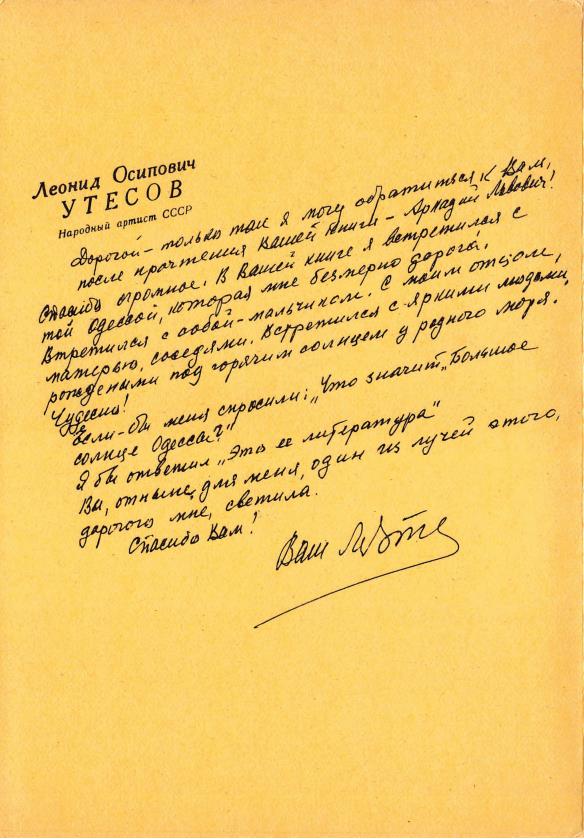 Леонид Осипович
УТЕСОВ
Народный артист СССР
Дорогой – только так я могу обратиться к Вам,
после прочтения Вашей книги – Аркадий Львович!
Спасибо огромное. В Вашей книге я встретился с
той Одессой, которая мне безмерно дорога!
Встретился с собой – мальчиком. С моим отцом,
матерью, соседями. Встретился с яркими людьми,
рождеными под горячим солнцем у родного моря.
Чудесно!
Если-бы меня спросили: „Что значит „Большое
солнце Одессы?"
Я бы ответил „Это ее литература"
Вы, отныне, для меня, один из лучей этого,
дорогого мне, светила.
Спасибо Вам!
Ваш